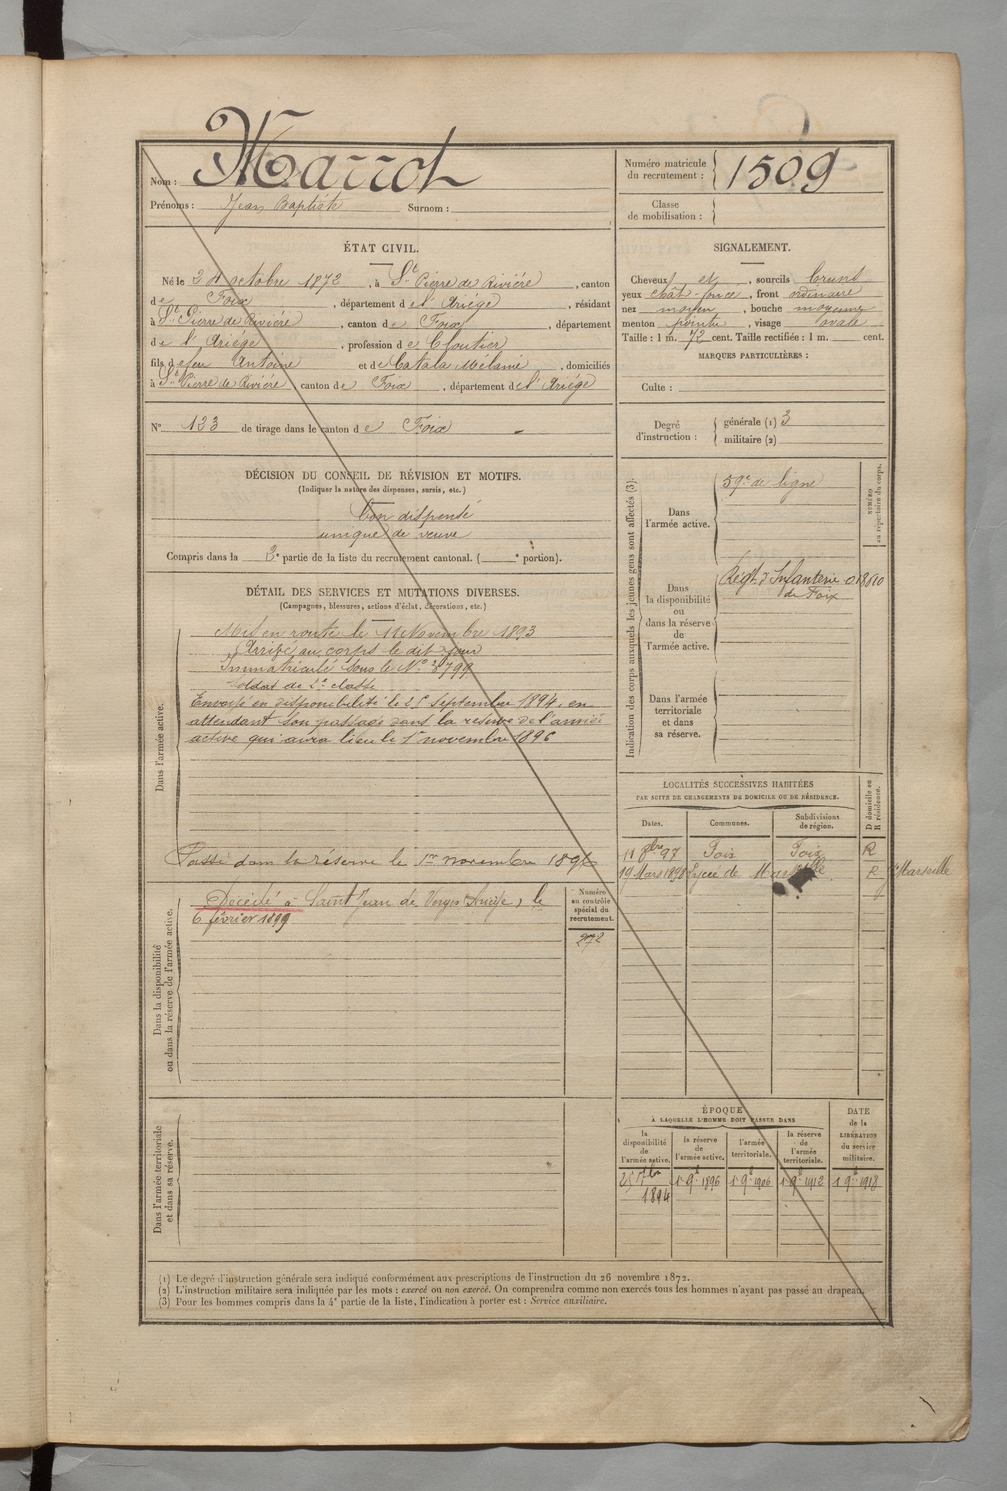 Nom : Marrot
Prénoms : Jean Baptiste Surnom :
Numéro matricule du recrutement : 1509
Classe de mobilisation :
ÉTAT CIVIL.
Né le 24 octobre 1872, à St Pierre de Rivière, canton
de Foix, département de l'Ariège, résidant
à St Pierre de Rivière, canton de Foix, département
de l'Ariège, profession de Cloutier
fils de feu Antoine et de Catala Mélanie, domiciliés
à St Pierre de Rivière canton de Foix, département de l'Ariège
N° 133 de tirage dans le canton de Foix
SIGNALEMENT.
Cheveux et, sourcils bruns
yeux chât-foncé, front ordinaire
nez moyen, bouche moyenne
menton pointu, visage ovale
Taille : 1 m. 72 cent. Taille rectifiée : 1 m. cent.
MARQUES PARTICULIÈRES :
Culte :
Degré d'instruction : générale (1) 3
militaire (2)
DÉCISION DU CONSEIL DE RÉVISION ET MOTIFS.
(Indiquer la nature des dispenses, sursis, etc.)
Bon dispensé
unique de veuve
Compris dans la 2e partie de la liste du recrutement cantonal. ( e portion).
DÉTAIL DES SERVICES ET MUTATIONS DIVERSES.
(Campagnes, blessures, actions d'éclat, décorations, etc.)
Dans l'armée active.
Mis en route le 11 Novembre 1893
Arrivé au corps le dit jour
Immatriculé sous le N° 3799
Soldat de 2e classe
Envoyé en disponibilité le 25 Septembre 1894, en
attendant son passage dans la réserve de l'armée
active qui aura lieu le 1er novembre 1896
Passé dans la réserve le 1er novembre 1896
Dans la disponibilité
ou dans la réserve de l'armée active.
Décédé à Saint Jean de Verges Ariège, le
6 février 1899
Numéro
au contrôle
spécial du
recrutement.
272
Dans l'armée territoriale
et dans sa réserve.
Indication des corps auxquels les jeunes gens sont affectés (3).
NUMÉRO
au répertoire du corps.
Dans
l'armée active.
59e de ligne
Dans
la disponibilité
ou
dans la réserve
de
l'armée active.
Régt d'Infanterie 018810
de Foix
Dans l'armée
territoriale
et dans
sa réserve.
LOCALITÉS SUCCESSIVES HABITÉES
PAR SUITE DE CHANGEMENTS DE DOMICILE OU DE RÉSIDENCE.
Dates. Communes. Subdivisions de région. D domicile ou R résidence.
97 Foix Foix R
19 Mars 1898 Lycée de Marseille R Marseille
ÉPOQUE
À LAQUELLE L'HOMME DOIT PASSER DANS
la disponibilité de l'armée active.
la réserve de l'armée active.
l'armée territoriale.
la réserve de l'armée territoriale.
DATE de la LIBÉRATION du service militaire.
25 7bre 1894
1 9e 1896
1 9e 1906
1 9e 1912
1 9e 1918
(1) Le degré d'instruction générale sera indiqué conformément aux prescriptions de l'instruction du 26 novembre 1872.
(2) L'instruction militaire sera indiquée par les mots : exercé ou non exercé. On comprendra comme non exercés tous les hommes n'ayant pas passé au drapeau.
(3) Pour les hommes compris dans la 4e partie de la liste, l'indication à porter est : Service auxiliaire.